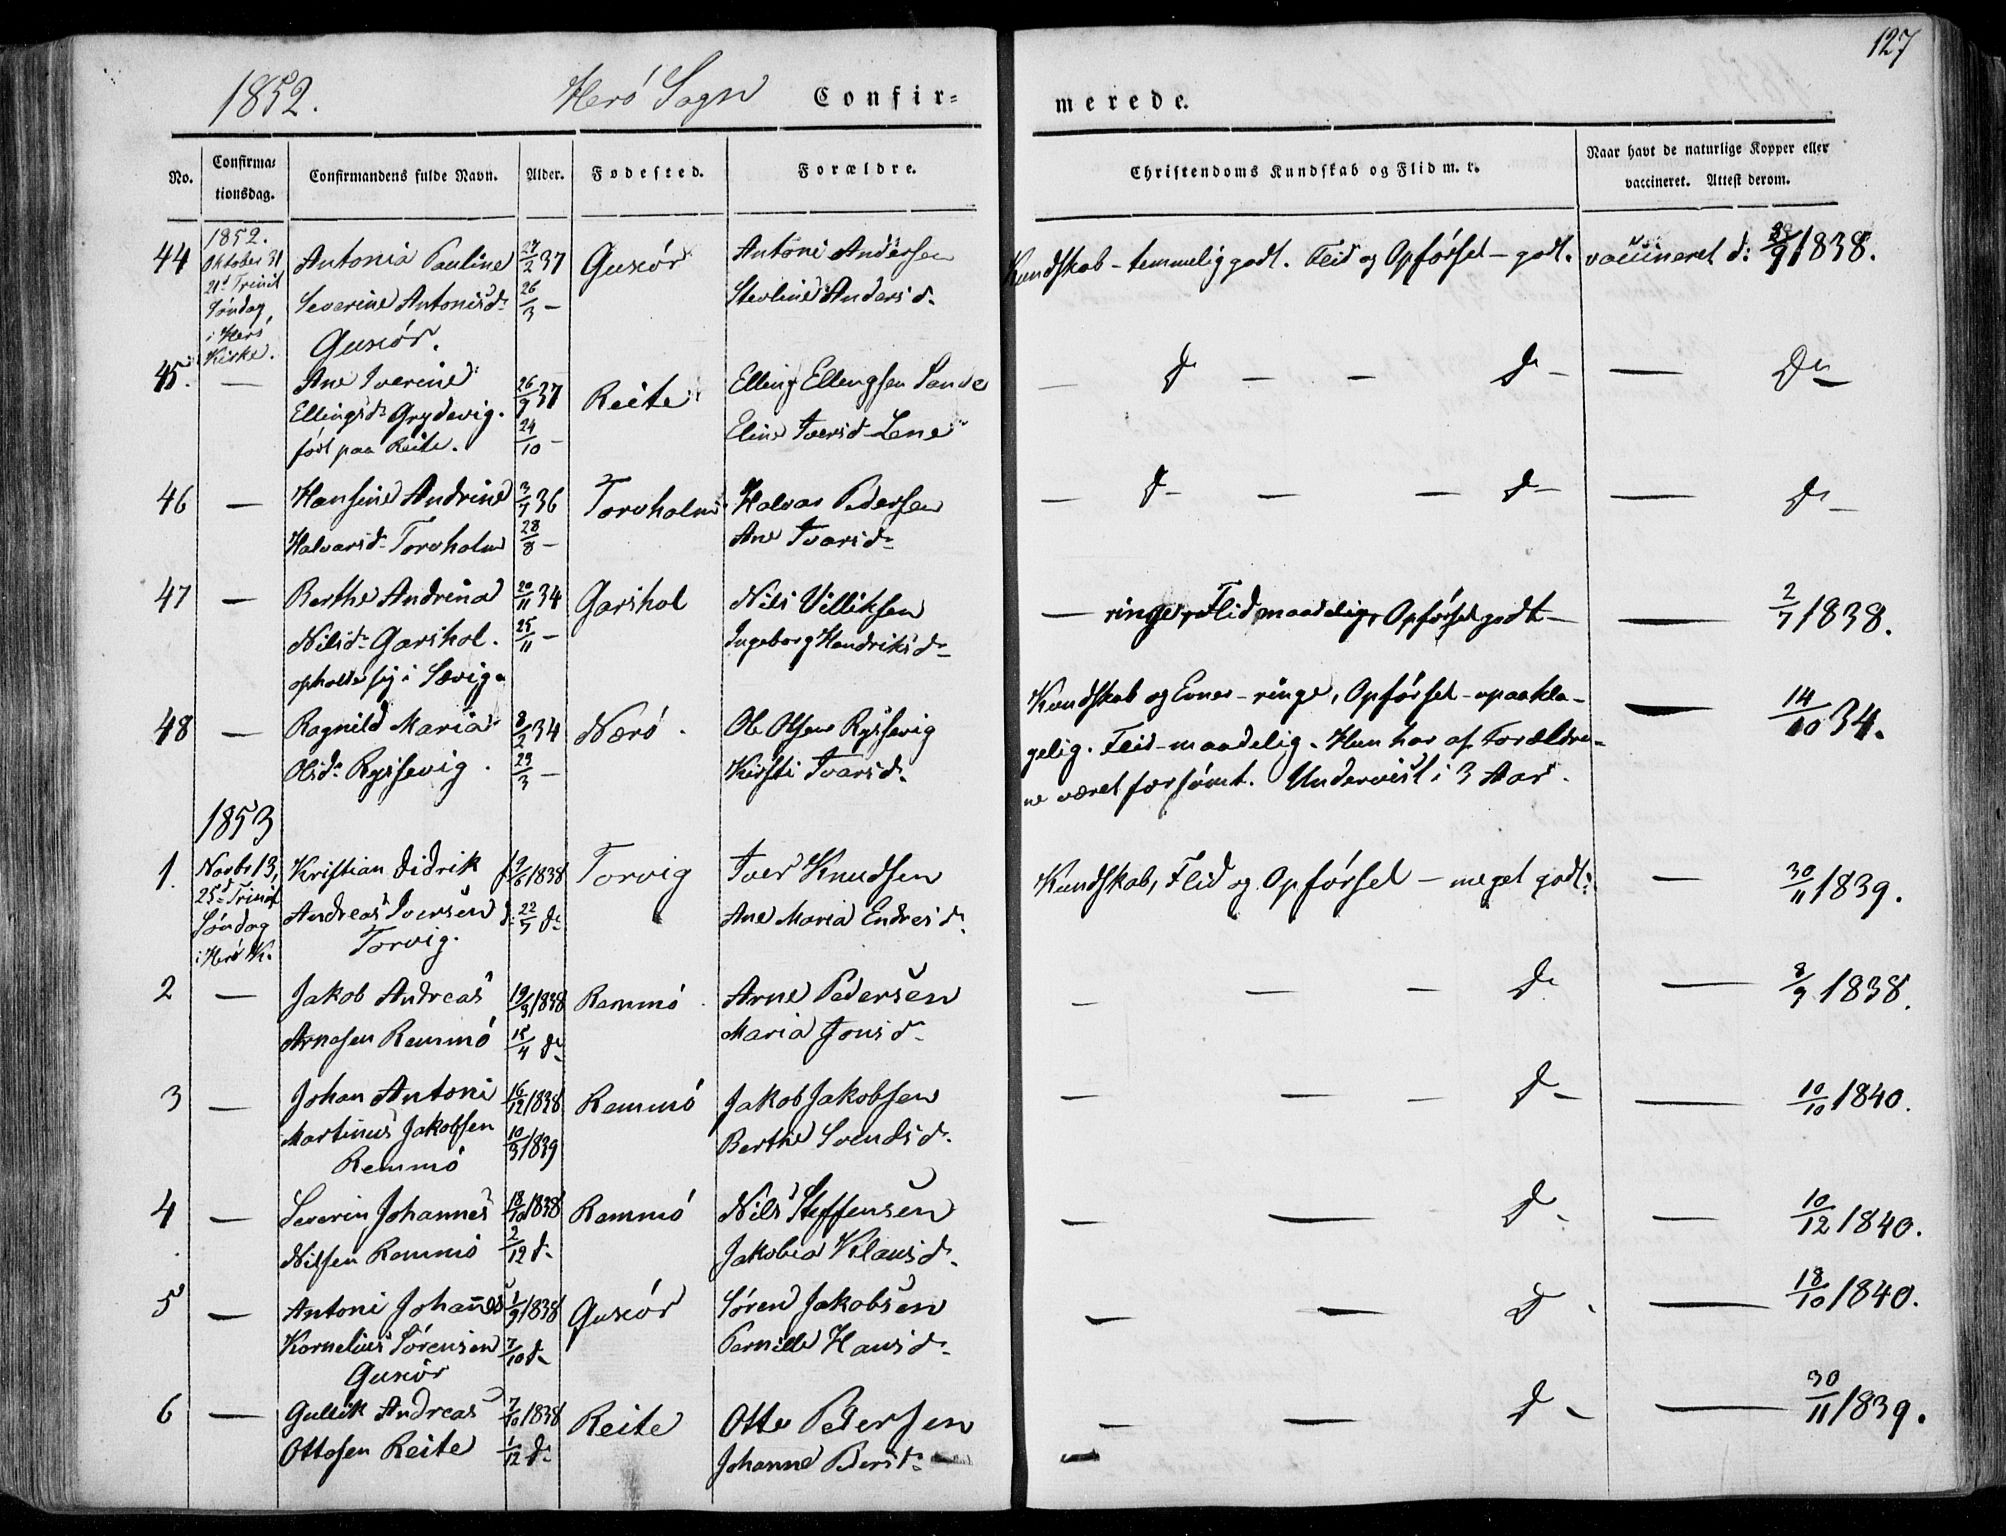 127
1852. Herö Sogn Confir=
merede.
No. Confirma=tionsdag. Confirmandens fulde Navn. Alder. Fødested. Forældre. Christendoms Kundskab og Flid m. v. Naar havt de naturlige Kopper eller vaccineret. Attest derom.
44 1852. Antonia Pauline 27/2 37 Guscör Antoni Andersen Kundskab - temmelig godt. Flid og Opförsel - godt. vaccineret d: /9 1838.
Oktober 31
21d Trinit Severine Antonisd: 26/3 — Stevline Andersd.
Söndag,
i Herö Guscör.
Kirke.
45. — Ane Iverine 26/9 37 Reite Elling Ellingsen Sande — d — — d — — Do
Ellingsd: Grydevig. 24/10 — Eline Iversd. Lene
född paa Reite.
46 — Hansine Andrine 3/7 36 Torvholm Halvar Pedersen — d — — — d — — d
Halvarsd: Torvholm 28/8 — Ane Ivarsd.
47 — Berthe Andrina 20/11 34 Garshol Nils Villiksen — ringe, Flid maadelig, Opförsel godt — — 2/7 1838.
Nilsd: Garshol. 25/11 — Ingeborg Hendriksd.
opholder sig i Sævig.
48 — Ragnild Maria 8/2 34 Nærö Ole Olsen Ryssevig Kundskab og Evner - ringe, Opförsel - upaakla- — 14/10 34.
Olsd: Ryssevig. 29/3 — Kirsti Ivarsd. gelig. Flid - maadelig. Hun har af Forældre-
ne været forsömt. Underviist i 3 Aar.
1853
1. Novbr 13, Kristian Didrik f. 19/6 1838 Torvig Iver Knudsen Kundskab, Flid og Opförsel — meget godt: — 30/11 1839.
25d Trinit
Söndag Andreas Iversen d: 22/7 d: Ane Maria Endresd.
i Herö K. Torvig.
2 — Jakob Andreas 19/3 1838 Remmö Arne Pedersen — — — d — 8/9 1838.
Arnesen Remmö 15/4 d: Maria Jonsd.
3 — Johan Antoni 16/12 1838 Remmö Jakob Jakobsen — — — d — — 10/10 1840.
Martinus Jakobsen 10/3 1839 Berthe Svendsd.
Remmö
4 — Severin Johannes 18/10 1838 Remmö Nils Steffensen — — d. — 10/12 1840.
Nilsen Remmö 2/12 d. Jakobia Klausd.
5 — Antoni Johañes 1/9 1838 Guscör Sören Jakobsen — — d. — 18/10 1840.
Kornelius Sörensen 7/10 d. Pernille Hansd.
Guscör
6 — Gullik Andreas 7/10 1838 Reite Otte Petersen — — d — — 30/11 1839.
Ottesen Reite 1/12 d. Johanne Persd.